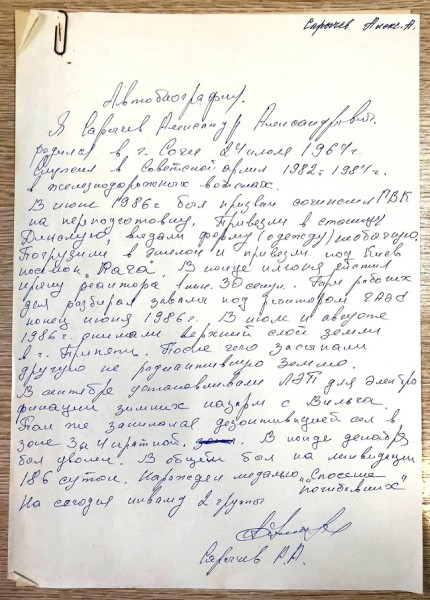 Сарычев Алекс. А.
Автобиография.
Я Сарычев Александр Александрович.
родился в г. Сочи 24 июля 1964г.
Служил в Советской армии 1982-1984г.
в железнодорожных войсках.
В июне 1986г был призван сочинским ГВК
на переподготовку. Привезли в станицу
динскую, выдали форму (одежду) рабочую.
Погрузили в эшелон и привезли под Киев
посёлок "Рага". В конце июня
крышу реактора 1 мин. 30 секун.
для разбирал завалы под реактором ЧАЭС
конец июня 1986г. В июле и августе
1986г. снимали верхний слой земли
в г. Припяти. После чего засыпали
другую не радиактивную землю.
В сентябре устанавливали ЛЭП для электро
фикации зимних казарм с Вильча.
Там же занимался дезактивацией сел в
зоне За 4 кратной. В конце декабря
был уволен. В общем был на ликвидации
186 суток. Награжден медалью "Спасение
погибавших"
На сегодня инвалид 2 группы
Сарычев А.А.